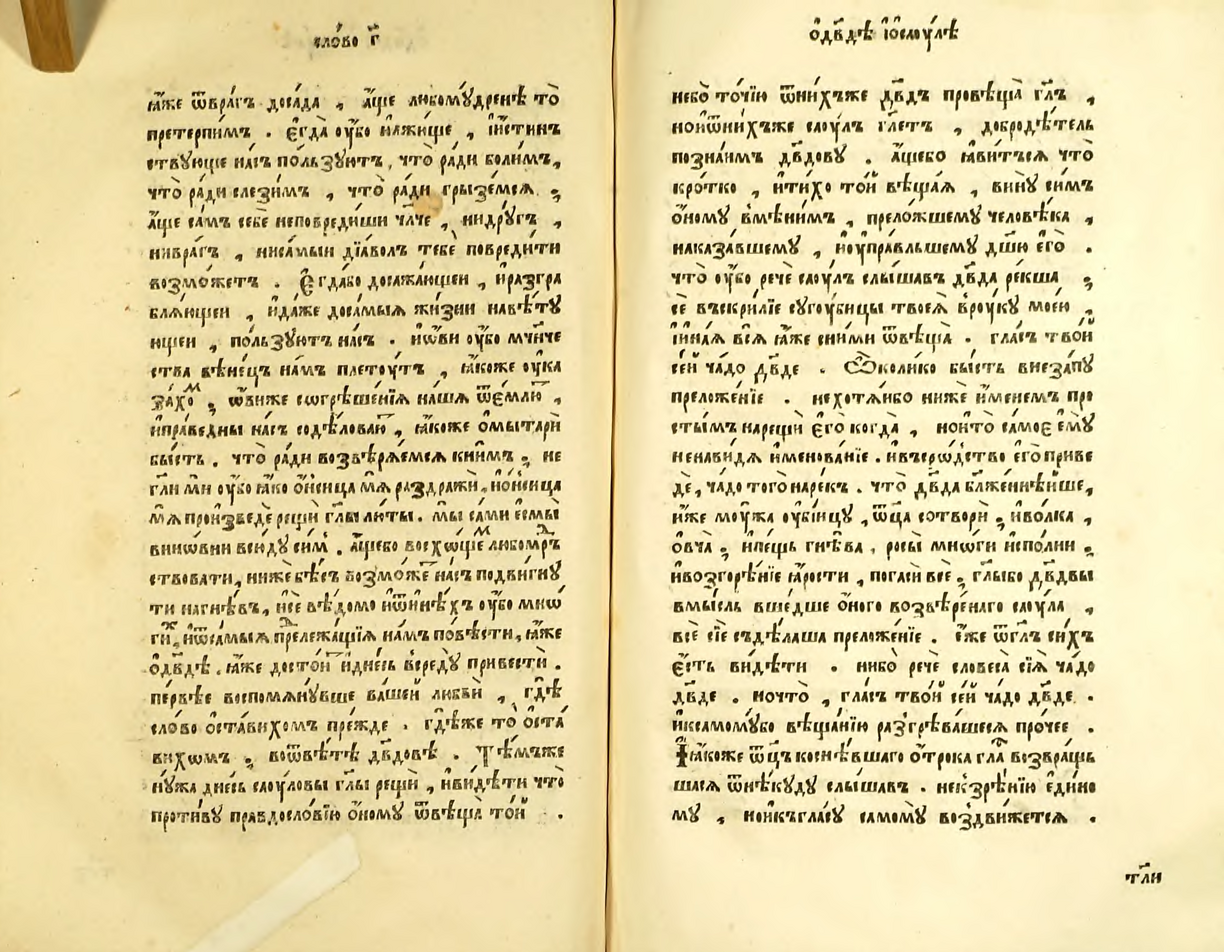 сло́во г҃
ꙗ҆́же ѿвра́гъ доса́да , а҆́ще любомꙋ́дренѣ то̀
претерпи́мъ . є҆гда̀ ᲂу҆́бо и҆лѫ́жище , и҆и҆́стин
ствꙋюще на́съ по́льзꙋютъ , что̀ ра́ди боли́мъ ,
что̀ ра́ди слези́мъ , что̀ ра́ди грызе́мсѧ ;
а҆́ще са́мъ себе неповреди́ши чл҃че , нидрꙋ́гъ ,
нивра́гъ , ниса́мыи дїа́волъ тебѐ повреди́ти
возмо́жетъ . Є҆гда́бо досажа́ющеи , и҆разгра
блѧ́ющеи , и҆да́же доса́мыѧ жи́зни навѣ́тꙋ
ющеи , по́льзꙋютъ на́съ . и҆ѡ҆́ви ᲂу҆́бо мч҃нче
ства вѣне́цъ на́мъ плетоу́тъ , ꙗ҆́коже ᲂу҆ка
за́хоⷨ ; ѡ҆́виже сѡгрѣше́нїѧ на́шѧ ѿе́млю ,
и҆пра́ведны на́съ содѣ́ловаю , ꙗ҆́коже ѡ҆мытари
бы́сть . что̀ ра́ди возвѣрѧ́емсѧ кни́мъ ; не
гл҃и ми ᲂу҆́бо ꙗ҆́ко ѻ҆́нсица мѧ̀ раздражѝ , и҆ѻ҆́нсица
мѧ̀ произведѐ рещѝ гл҃ы лю́ты . мы̀ са́ми є҆смы̀
вино́вни всѝдꙋ си́мⷨ . а҆́щебо восхо́щеⷨ любомⷣръ
ствовати , ниже́бѣсъ возмо́жеⷮ на́съ подви́гнꙋ
ти нагнѣ́въ , и҆сѐ вѣ́домо и҆ѿи҆нѣ́хъ ᲂу҆́бо мнѡ́
гиⷯ , и҆ѿса́мыѧ преⷣлежа́щїѧ на́мъ по́вѣсти , ꙗ҆́же
ѻ҆дв҃дѣ . ꙗ҆́же досто́йⷩ и҆дне́сь всредꙋ̀ привестѝ .
пе́рвѣе воспомѧнꙋ́вше ва́шей любвѝ , гдѣ̀
сло́во ѻ҆ста́вихомъ пре́жде . гдѣ́же то̀ ѻ҆ста́
вихѡмъ ; воѿвѣ́тѣ дв҃довѣ . Тѣ́мъже
нꙋ́жа дне́сь саоу́ловы гл҃ы рещѝ , и҆ви́дѣти что̀
проти́вꙋ правдосло́вїю ѻ҆́номꙋ ѿвѣща̀ то́й .
ѻ҆дв҃дѣ и҆ѻ҆саоу́лѣ
небо̀ то́чїю ѿни́хъже дв҃дъ провѣща̀ гл҃ъ ,
нои҆ѿни́хъже саоу́лъ гл҃етъ , добродѣ́тель
позна́имъ дв҃довꙋ . а҆́щебо ꙗ҆ви́тъсѧ что̀
кро́тко , и҆ти́хо то́й вѣща́ѧ , винꙋ̀ си́мъ
ѻ҆́номꙋ вмѣни́мъ , прело́жшемꙋ человѣ́ка ,
наказа́вшемꙋ , и҆оу҆пра́вльшемꙋ дш҃ю є҆го̀ .
что̀ ᲂу҆́бо речѐ саоу́лъ слы́шавъ дв҃да ре́кша ;
сѐ въскри́лїе сꙋгоу́бицы твоеѧ̀ вроу́кꙋ моє́ю ,
и҆и҆на́ѧ всѧ̀ ꙗ҆́же сни́ми ѿвѣща̀ . гла́съ тво́й
се́й ча́до дв҃де . Ѽколи́ко бы́сть внеза́пꙋ
преложе́нїе . не хотѧ́ибо нижѐ и҆́менемъ про
сты́мъ нарещѝ є҆го̀ когда̀ , нои҆то̀ самоѐ є҆мꙋ̀
ненави́дѧ и҆менова́нїе . и҆въсро́дство є҆го̀ приве
дѐ , ча́до того̀ наре́къ . что̀ дв҃да бл҃же́ннѣйше ,
и҆́же моу́жа ᲂу҆бі́йцꙋ , ѿц҃а сотворѝ ; и҆во́лка ,
ѻ҆вча̀ ; и҆пе́щь гнѣ́ва , росы̀ мно́ги и҆спо́лни ;
и҆возгорѣ́нїе ꙗ҆́рости , погасѝ всѐ ; гл҃ы́бо дв҃двы
вмы́сль вше́дше ѻ҆́ного возвѣре́наго саоу́ла ,
всѐ сїѐ съдѣ́лаша преложе́нїе . є҆́же ѿгл҃ъ си́хъ
є҆́сть ви́дѣти . ни́бо речѐ словеса̀ сїѧ̀ ча́до
дв҃де . ночто̀ , гла́съ тво́й се́й ча́до дв҃де .
и҆ксамомꙋ́бо вѣща́нїю разгрѣва́шесѧ про́чее .
І҆ꙗ҆́коже ѿц҃ъ коснѣ́вшаго ѻ҆́трока гла́ⷭ возвра́щь
шасѧ ѿнѣ́кꙋдꙋ слы́шавъ . некзрѣ́нїю є҆ди́но
мꙋ , нои҆къгла́сꙋ самомꙋ̀ воздви́жетсѧ .
тл҃и